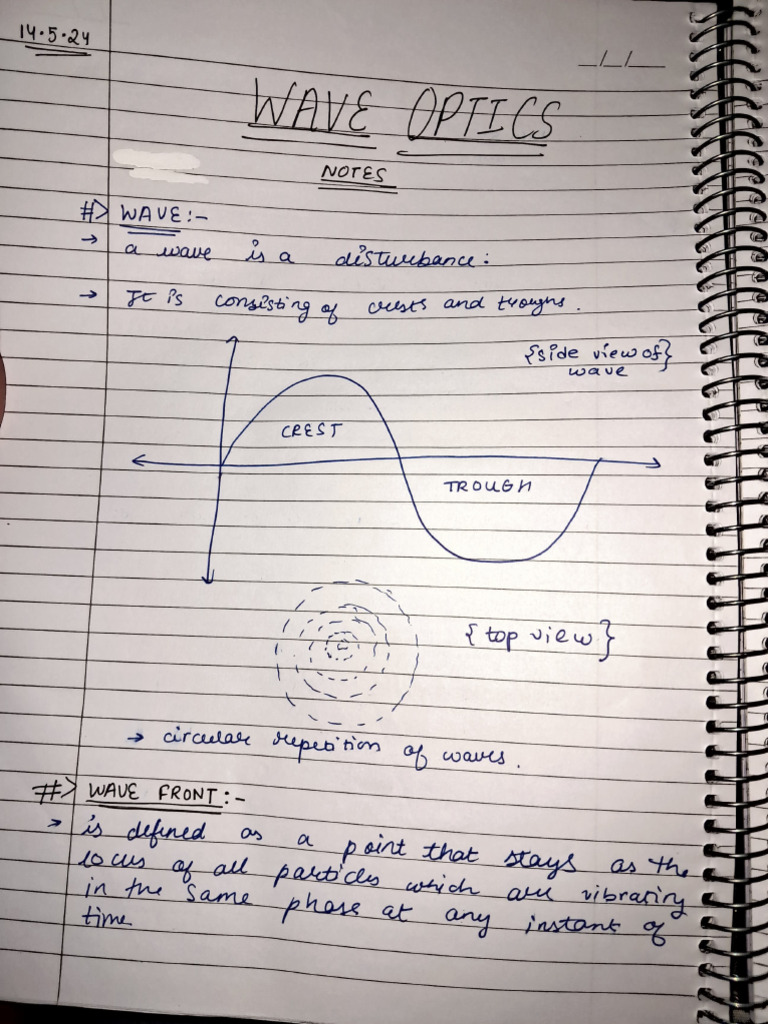 14.5.24
_/_/__
WAVE OPTICS
NOTES
#> WAVE:-
→ a wave is a disturbance:
→ It is consisting of crests and troughs.
{side view of}
wave
CREST
TROUGH
{top view}
→ circular repetition of waves.
#> WAVE FRONT:-
→ is defined as a point that stays as the
locus of all particles which are vibrating
in the same phase at any instant of
time